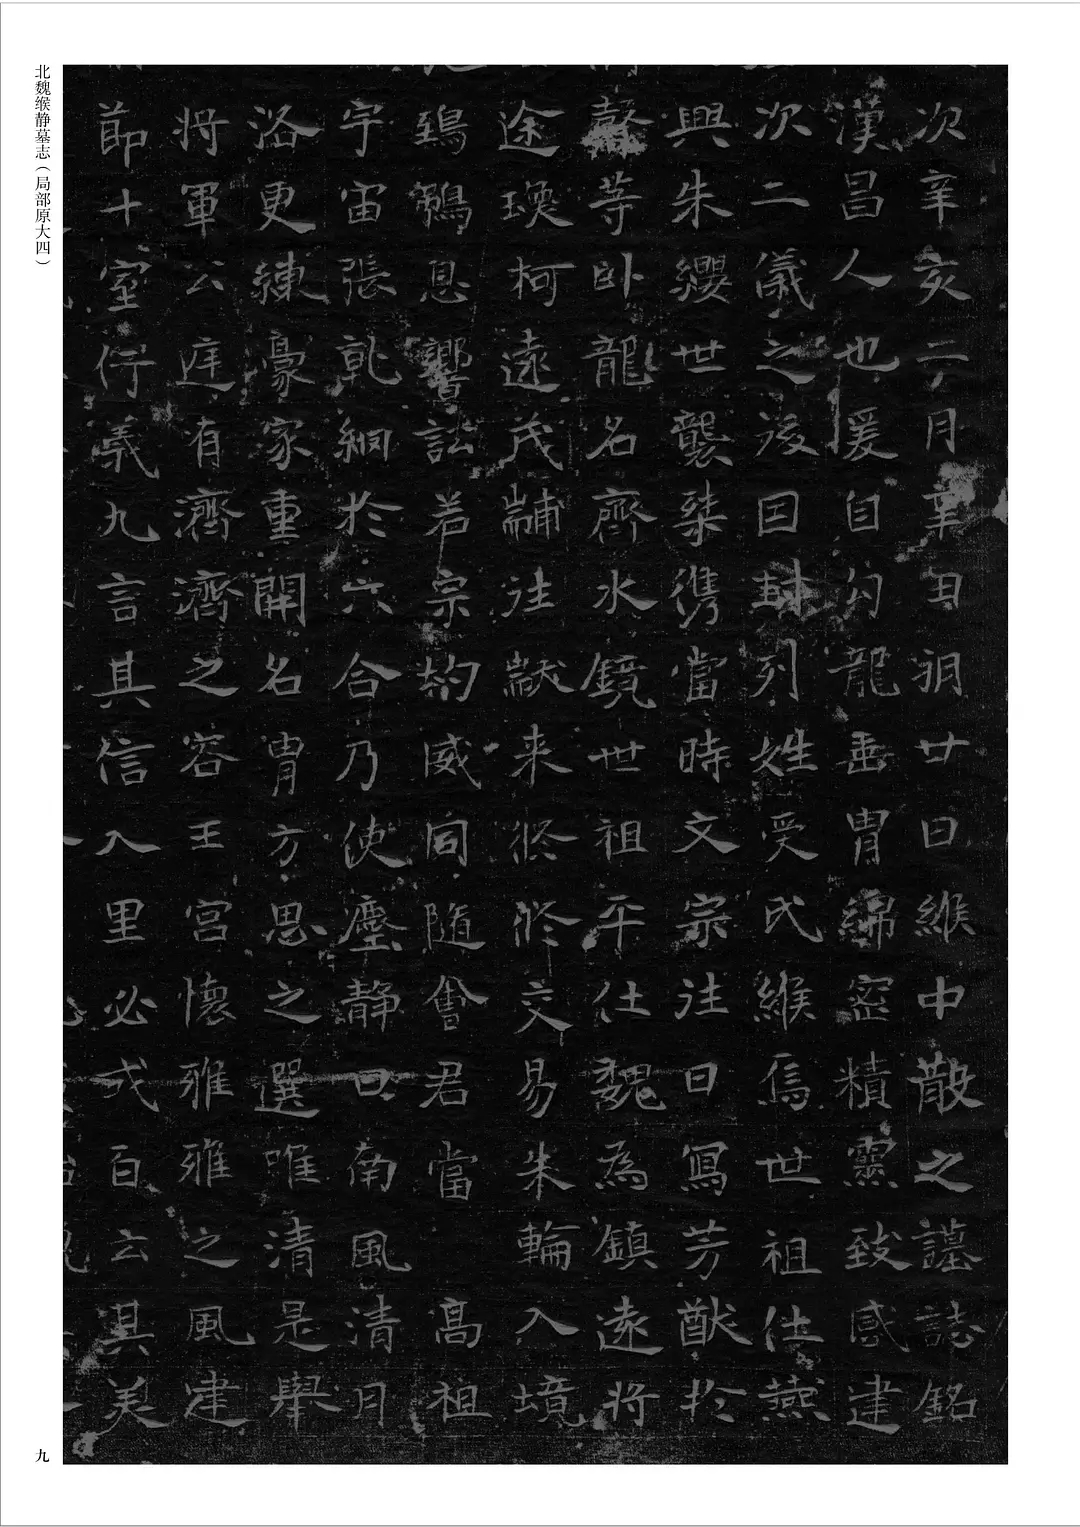 次辛亥二月辛丑朔廿日緱中散之謹誌銘
漢昌人也爰自勾龍垂胄綿密積靈致感建
次二儀之後因封列姓受氏緱焉世祖仕燕
興朱纓世襲桀儁當時文宗注日寫芳猷於
馨等卧龍名齊水鏡世祖平仕魏為鎮遠將
途瑛柯遠茂黼往猷来脩交易朱輪入境
鵄鴞息響訟若宗均威同随會君當 高祖
宇宙張乾絅於六合乃使塵静口南風清月
洛更練豪家重開名胄方思之選唯清是舉
将軍公庭有濟濟之容王宫懷雅雅之風建
節十室行義九言其信入里必式百云其美
北魏缑静墓志（局部原大四）
九